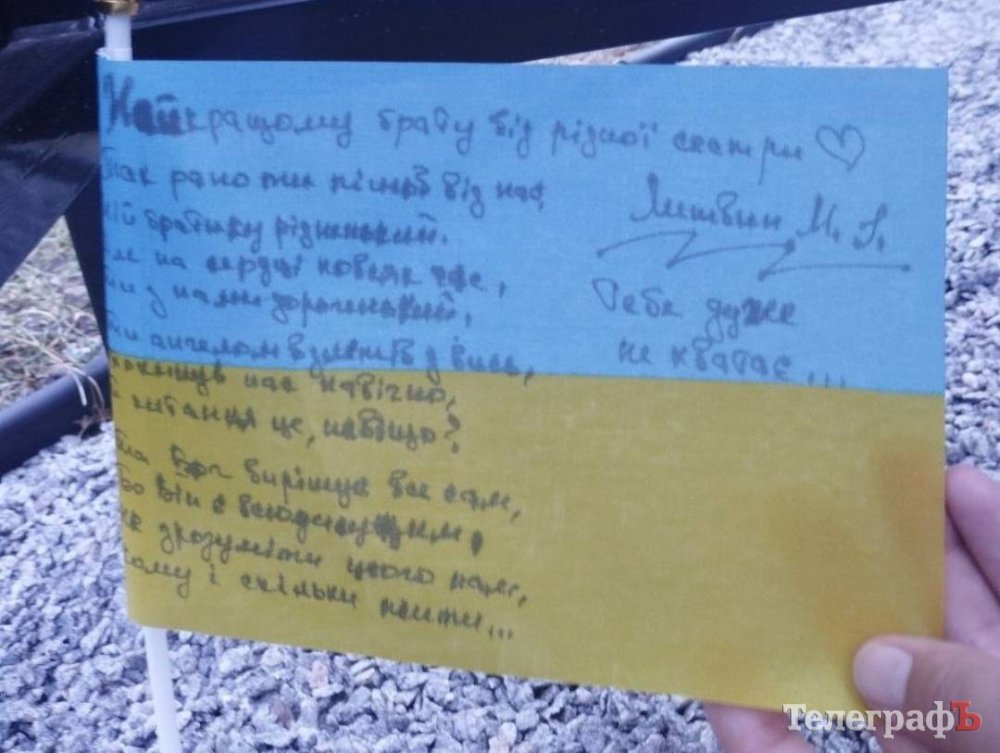 Найкращому брату від рідної сестри
Так рано ти пішов від нас,
мій братику рідненький.
на серці повсяк час,
ти з нами дорогенький,
Ти ангелом взлетів у вись,
покинув нас навічно,
й питання це, навіщо?
Та Бог вирішує все сам,
Бо він є всюдисущим,
не зрозуміти цього нам,
кому і скільки жити...
Литвин М. Я.
Тебе дуже
не хватає...
ТелеграфЪ